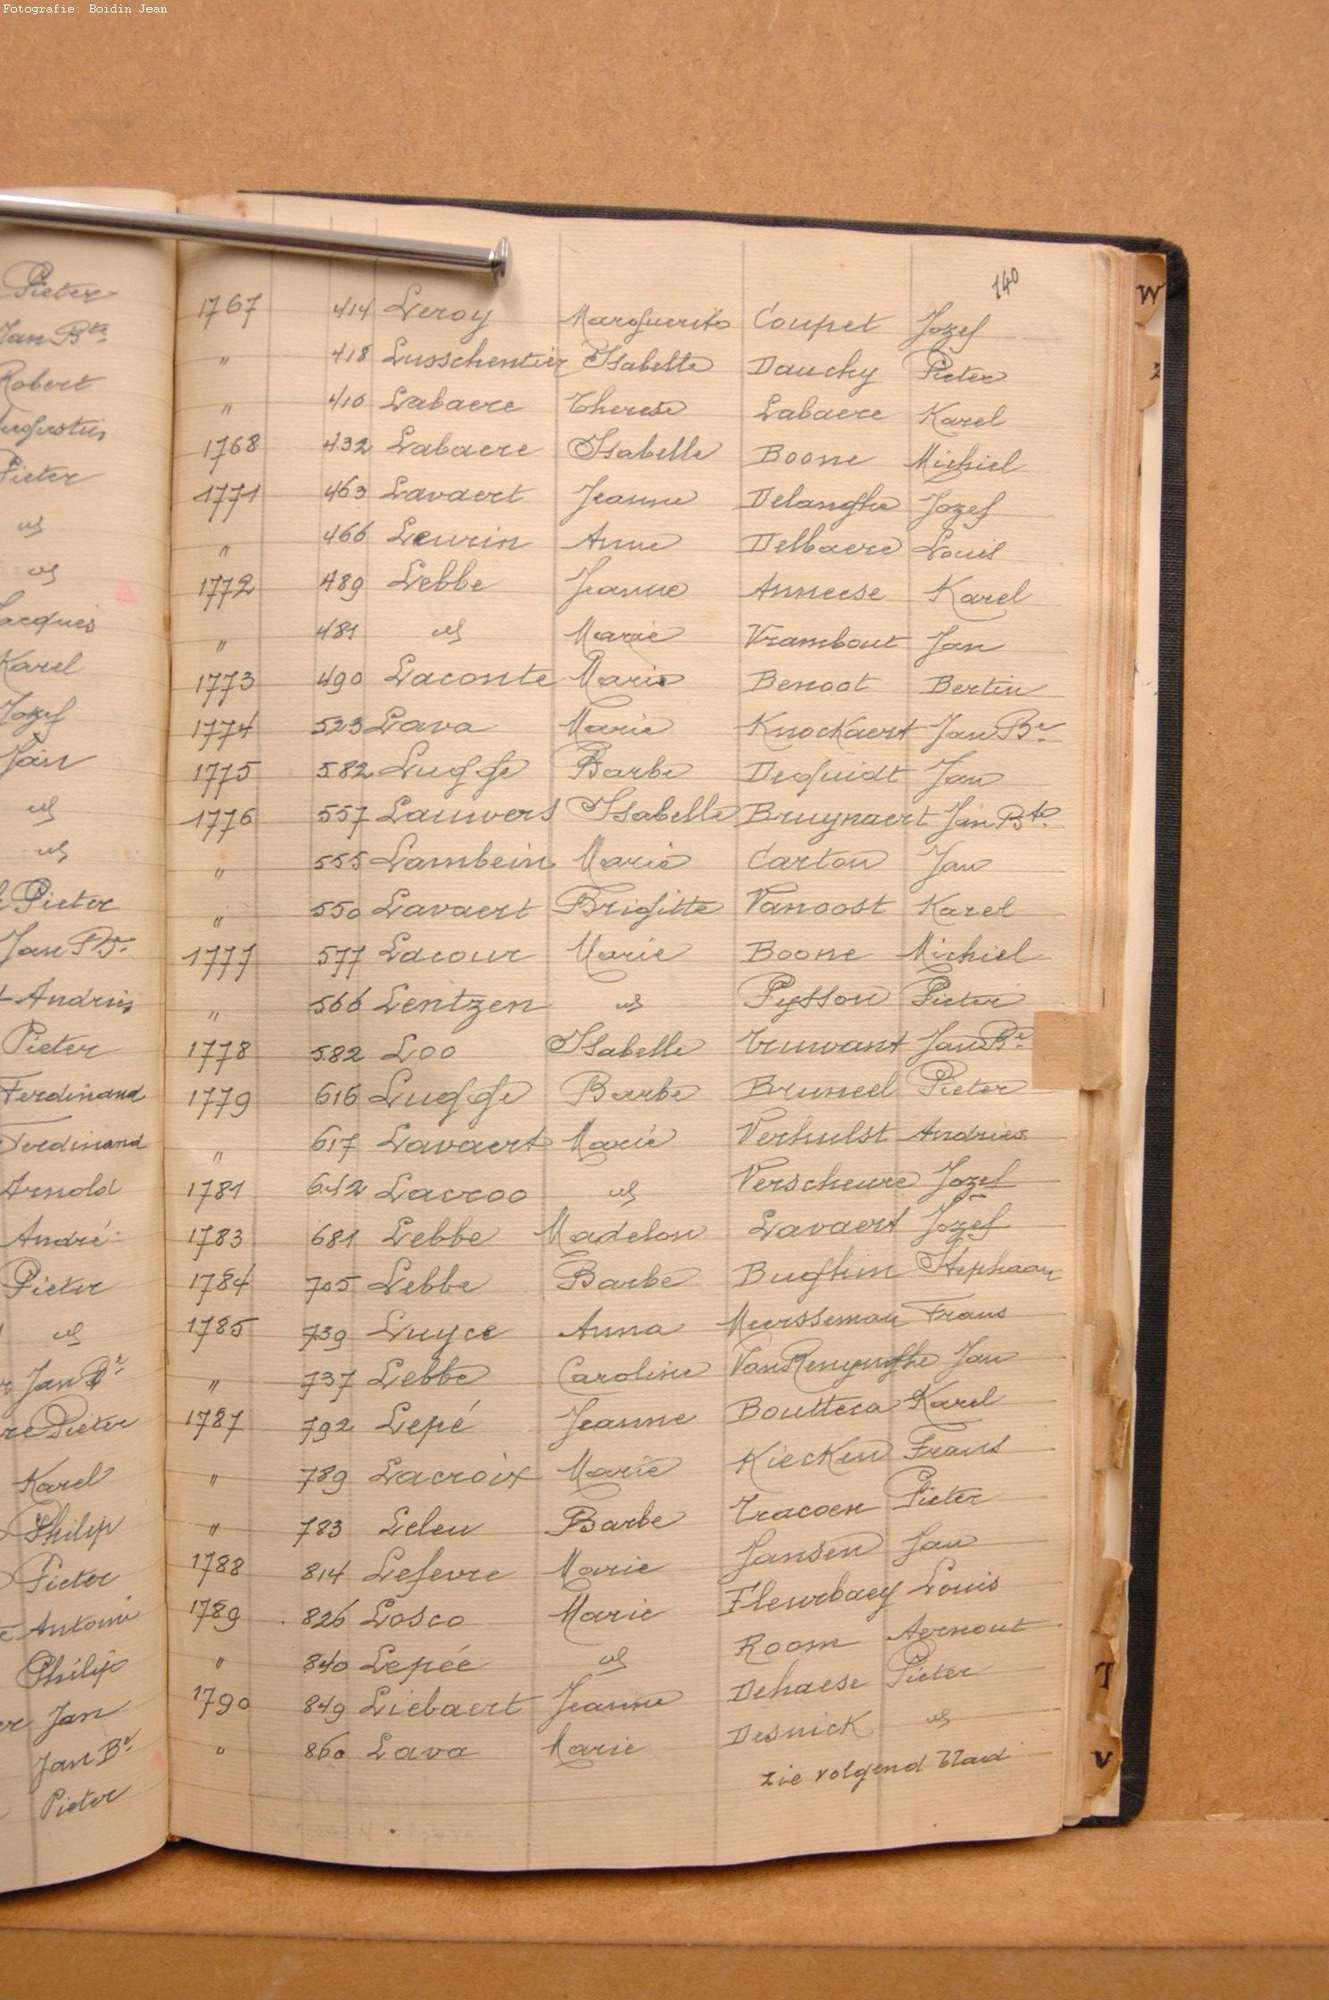 Fotografie: Boidin Jean
140
1767 414 Leroy Marguerito Coupet Jozef
" 418 Lusschentier Isabelle Dauchy Pieter
" 410 Labaere Therese Labaere Karel
1768 432 Labaere Isabelle Boone Michiel
1771 463 Lavaert Jeanne Delanghe Jozef
" 466 Leurin Anne Delbaere Louis
1772 489 Lebbe Jeanne Anneese Karel
" 481 id Marie Vrambout Jan
1773 490 Laconte Marie Benoot Bertin
1774 523 Lava Marie Knockaert Jan Bte
1775 582 Lugghe Barbe Deguidt Jan
1776 557 Lauwers Isabelle Bruynaert Jan Bte
" 555 Lambein Marie Carton Jan
" 550 Lavaert Brigitte Vanoost Karel
1777 577 Lacour Marie Boone Michiel
" 566 Lentzen id Pysson Pieter
1778 582 Loo Isabelle Truwant Jan Bte
1779 616 Lugghe Barbe Bruneel Pieter
" 617 Lavaert Marie Verhulst Andries
1781 642 Lacroo id Verscheure Jozef
1783 681 Lebbe Madelon Lavaert Jozef
1784 705 Lebbe Barbe Bughin Stephaan
1785 739 Luyce Anna Meersseman Frans
" 737 Lebbe Caroline VanRenynghe Jan
1787 792 Lepé Jeanne Boutteca Karel
" 789 Lacroix Marie Kiecken Frans
" 783 Leleu Barbe Tracoen Pieter
1788 814 Lefevre Marie Jansen Jan
1789 826 Losco Marie Fleurbaey Louis
" 840 Lepée id Room Aernout
1790 849 Liebaert Jeanne Dehaese Pieter
" 860 Lava Marie Desnick id
zie volgend blad
Pieter
Jan Bte
Robert
Pieter
id
id
Jacques
Karel
Jozef
Jan
id
id
Pieter
Jan Bte
Andries
Pieter
Ferdinand
Ferdinand
Arnold
André
Pieter
id
Jan Bte
Pieter
Karel
Philip
Pieter
Antoine
Philip
Jan
Jan Bte
Pieter
W
T
V